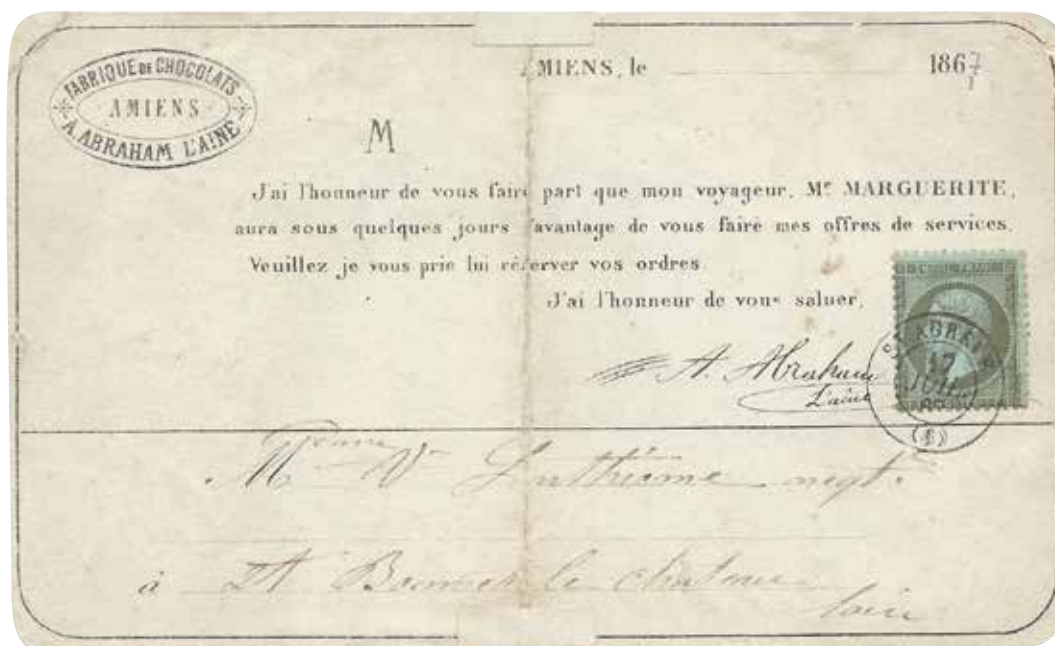 FABRIQUE DE CHOCOLATS
AMIENS
A. ABRAHAM L'AINÉ
AMIENS, le 1867
M
J'ai l'honneur de vous faire part que mon voyageur, Mr MARGUERITE,
aura sous quelques jours l'avantage de vous faire mes offres de services.
Veuillez je vous prie lui réserver vos ordres.
J'ai l'honneur de vous saluer,
A. Abraham
L'ainé
17
JUIL
(1)
negt.
à St Bonnet le chateau
Loire